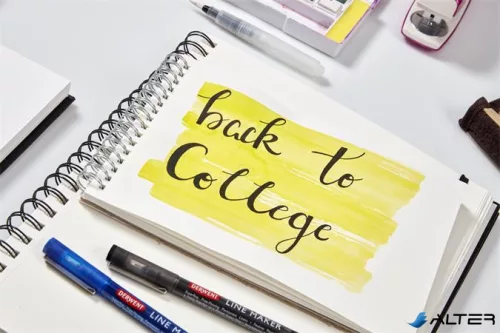 back to
College
DERWENT LINE MAKER
DERWENT LINE MAKER
ALTER